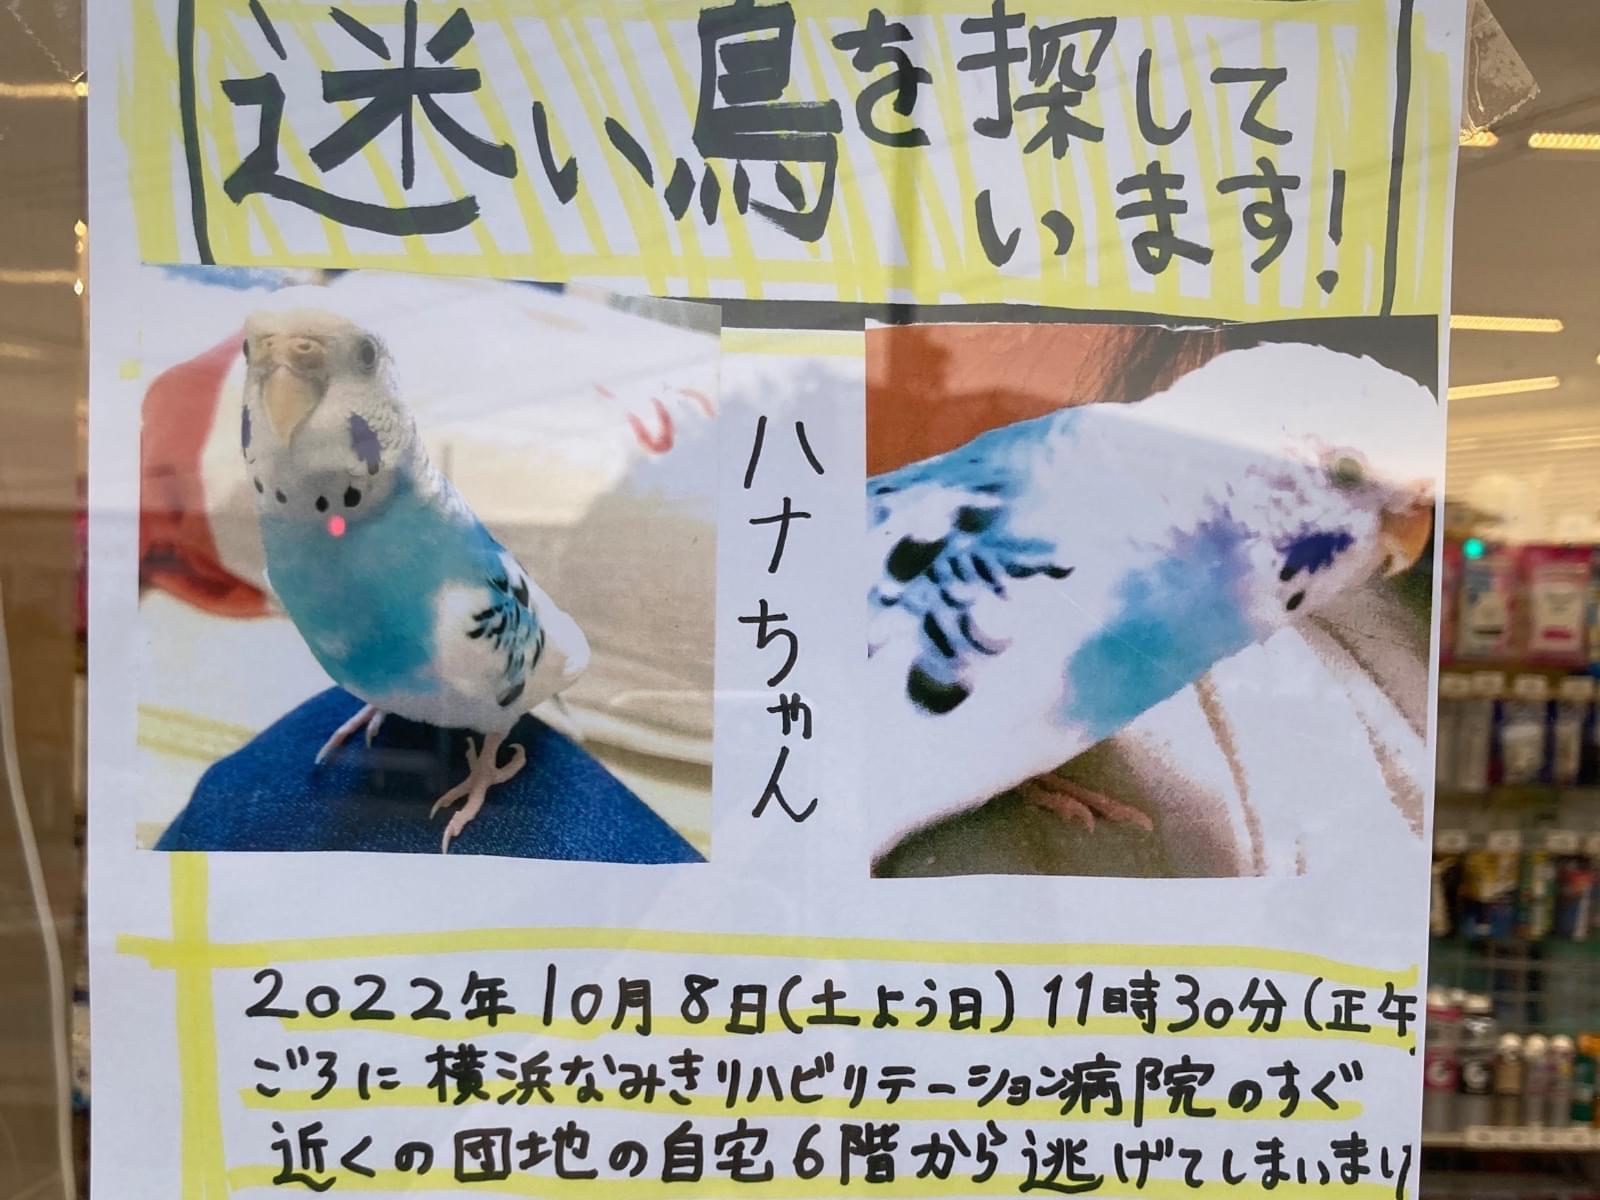 迷い鳥を探して
います!
ハナちゃん
2022年10月8日(土よう日)11時30分(正午
ごろに横浜なみきリハビリテーション病院のすぐ
近くの団地の自宅6階から逃げてしまいまし